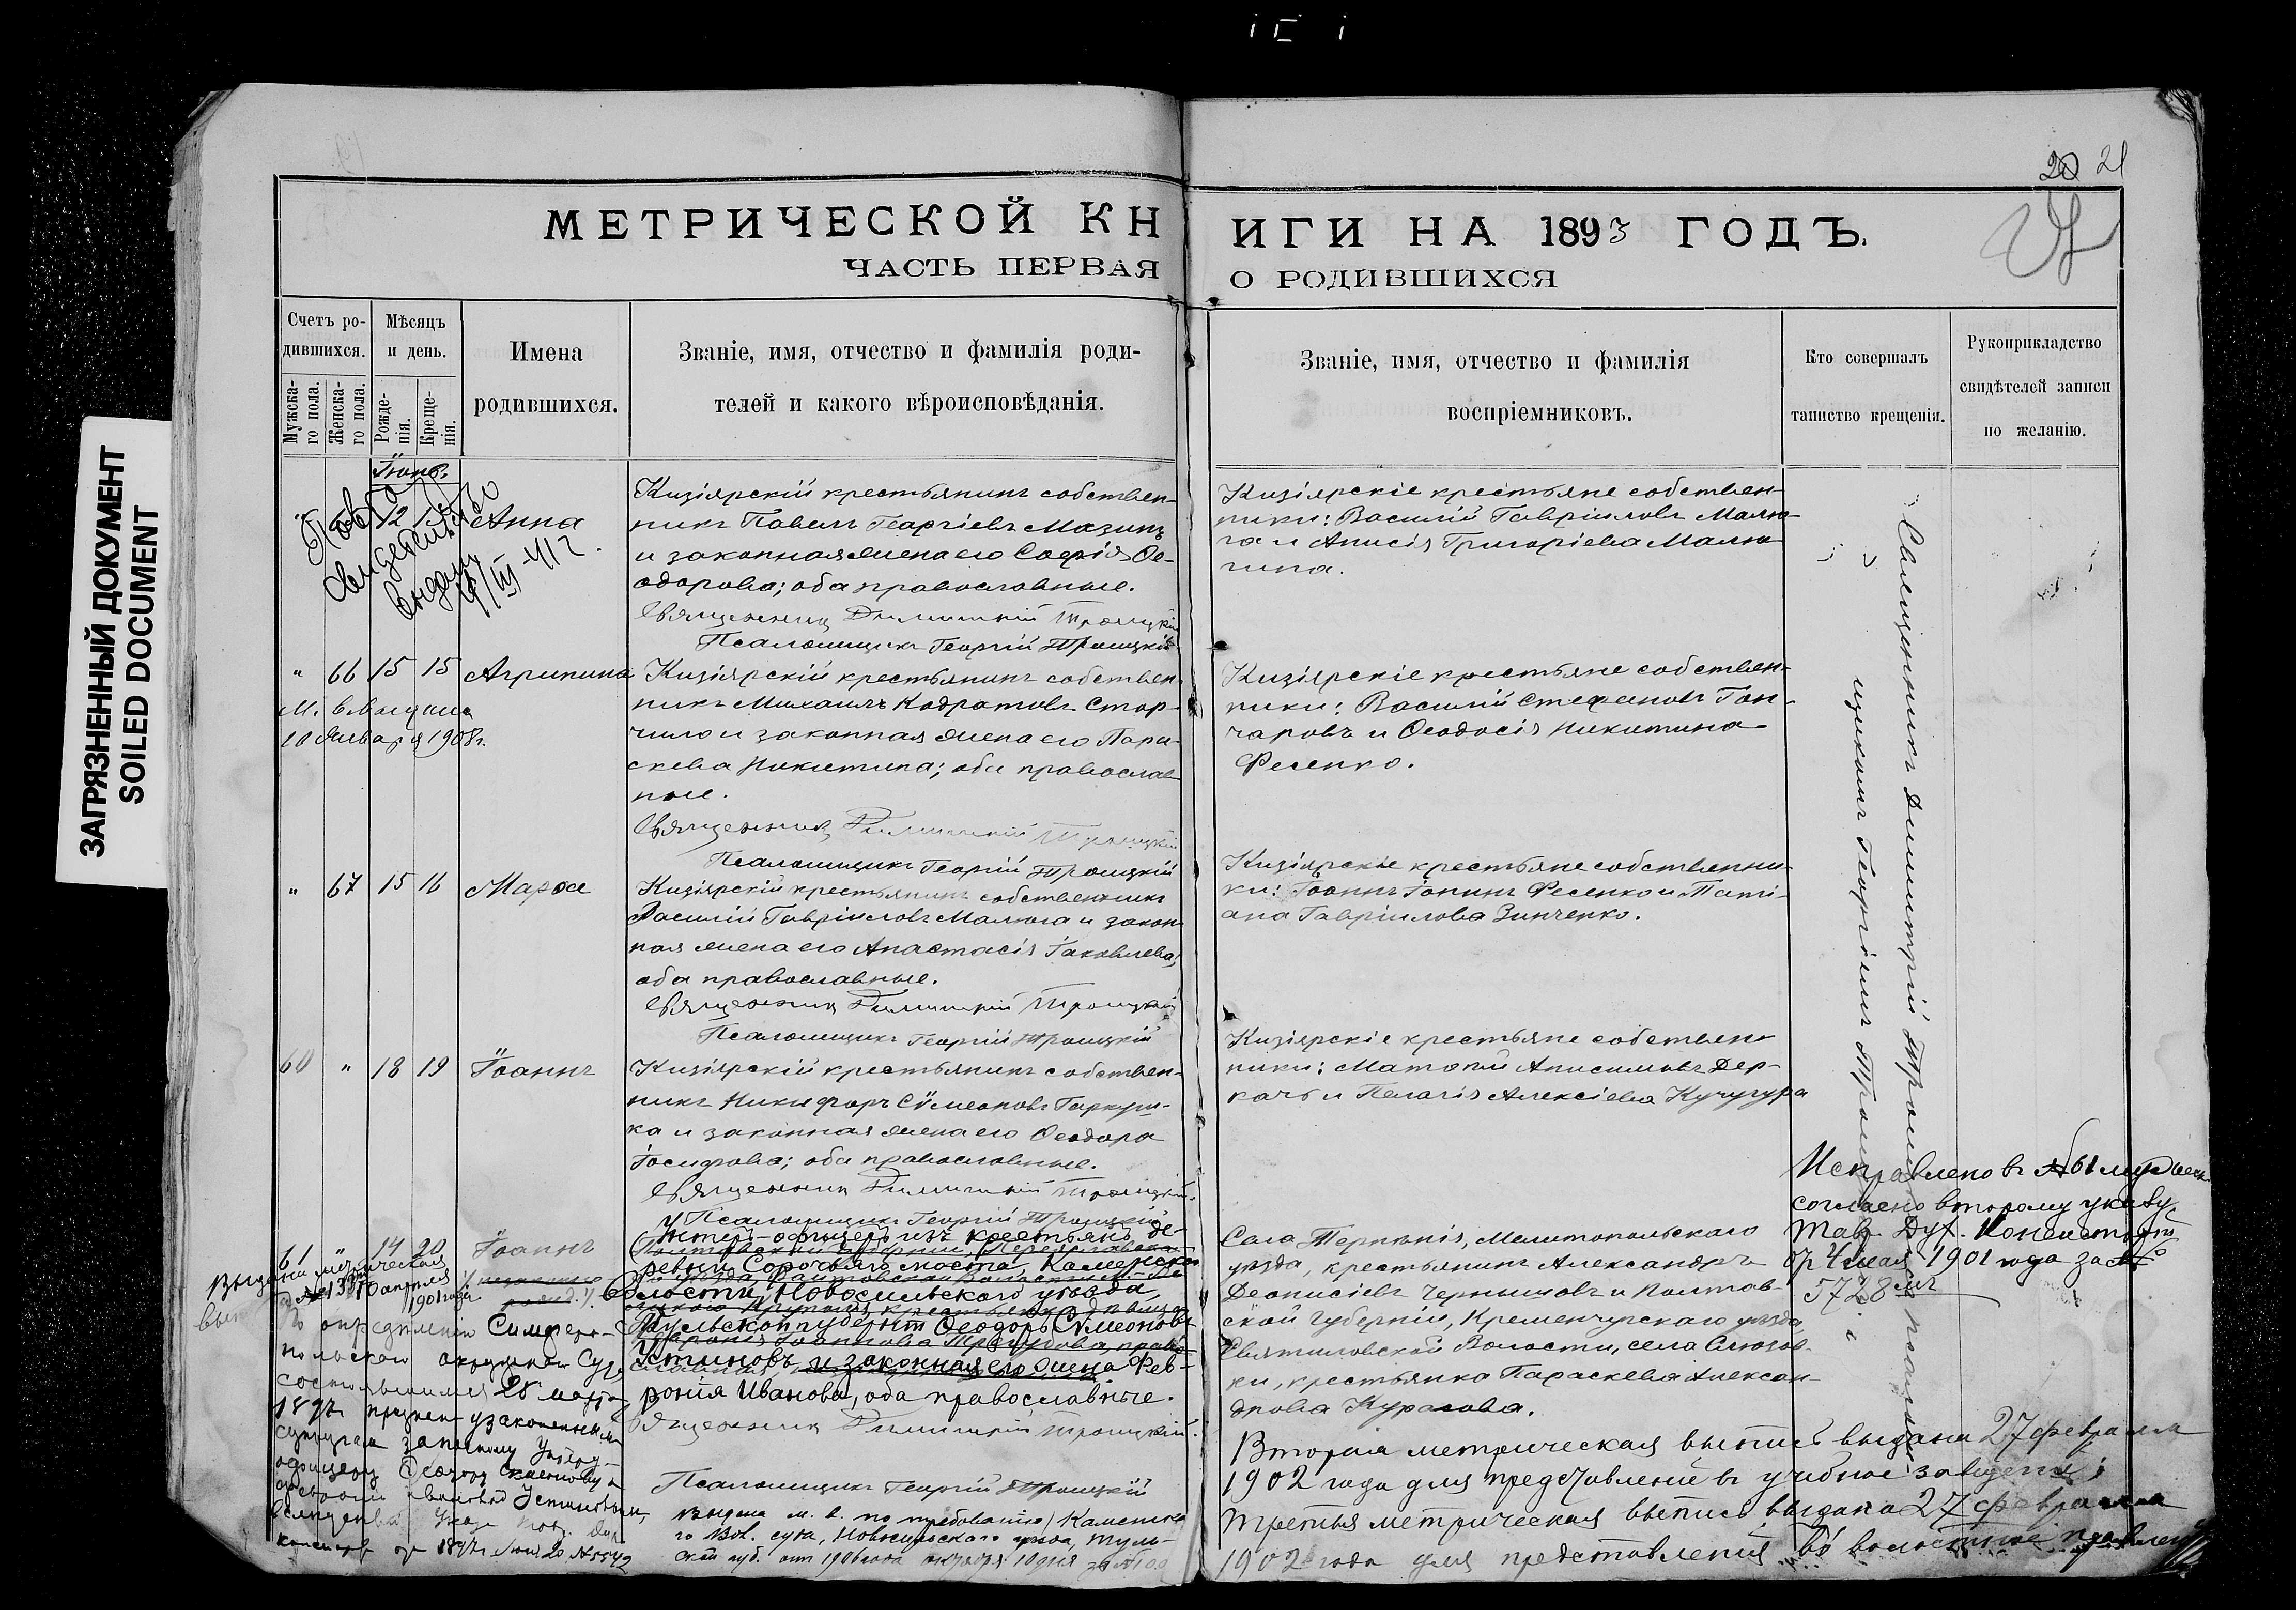 ЗАГРЯЗНЕННЫЙ ДОКУМЕНТ
SOILED DOCUMENT
20 21
МЕТРИЧЕСКОЙ КНИГИ НА 1893 ГОДЪ.
ЧАСТЬ ПЕРВАЯ О РОДИВШИХСЯ
Счетъ ро-
дившихся.
Мужска-
го пола.
Женска-
го пола.
Мѣсяцъ
и день.
Рожде-
нія.
Креще-
нія.
Имена
родившихся.
Званіе, имя, отчество и фамилія роди-
телей и какого вѣроисповѣданія.
Званіе, имя, отчество и фамилія
воспріемниковъ.
Кто совершалъ
таинство крещенія.
Рукоприкладство
свидѣтелей записи
по желанію.
12
Анна
свидетельство
выдано
Кизіярскій крестьянинъ собствен-
никъ Павелъ Георгіевъ Мазинъ
и законная жена его Софія Ѳе-
одорова; оба православные.
Священникъ Димитрій Троицкій
Псаломщикъ Георгій Троицкій
Кизіярскіе крестьяне собствен-
ники: Василій Гавріиловъ Малю-
га и Анисія Григоріева Малю-
гина.
" 66 15 15 Агрипина
10 Января 1908 г.
Кизіярскій крестьянинъ собствен-
никъ Михаилъ Кодратовъ Стор-
чило и законная жена его Пара-
скева Никитина; оба православ-
ные.
Священникъ Димитрій Троицкій
Псаломщикъ Георгій Троицкій
Кизіярскіе крестьяне собствен-
ники: Василій Стефановъ Гон-
чаровъ и Ѳеодосія Никитина
Фесенко.
" 67 15 16 Марѳа
Кизіярскій крестьянинъ собственникъ
Василій Гавріиловъ Малюга и закон-
ная жена его Анастасія Іаковлева;
оба православные.
Священникъ Димитрій Троицкій
Псаломщикъ Георгій Троицкій
Кизіярскіе крестьяне собственни-
ки: Іоаннъ Фесенко и Таті-
ана Гавріилова Зинченко.
60 " 18 19 Іоаннъ
Кизіярскій крестьянинъ собствен-
никъ Никифоръ Сѵмеоновъ Гаркуш-
ка и законная жена его Ѳеодора
Іосифова; оба православные.
Священникъ Димитрій Троицкій.
Псаломщикъ Георгій Троицкій
Кизіярскіе крестьяне собствен-
ники: Матѳей Анисимовъ Дер-
качъ и Пелагія Алексіева Кучугура
Священникъ Димитрій Троицкій съ псалом-
щикомъ Георгіемъ Троицкимъ
61 " 14 20 Іоаннъ
Унтеръ-офицеръ изъ крестьянъ де-
ревни Сорочьяго моста, Каменской
Волости, Новосильскаго уѣзда,
Тульской губерніи Ѳеодоръ Сѵмеоновъ
Устиновъ и законная его жена Фев-
ронія Иванова, оба православные.
Священникъ Димитрій Троицкій.
Псаломщикъ Георгій Троицкій
Села Терпѣнія, Мелитопольскаго
уѣзда, крестьянинъ Александръ
Деонисіевъ Чернышовъ и Полтав-
ской Губерніи, Кременчугскаго уѣзда,
Волости, села
ки, крестьянка Параскева Алексан-
дрова Курасова.
Исправлено въ № 61
согласно второму указу
Тав. Дух. Консисторіи
отъ 4 мая 1901 года за №
5728
метрическая
10 апрѣля
1901 года
опредѣленію Симферо-
польскаго окружнаго Суда
состоявшимся 28 марта
1897 г. признан узаконеннымъ
супругам запасному Унтеръ-
офицеру
Выдана м. в. по требованію Каменска-
го Вол. суда, Новосильскаго уѣзда, Туль-
ской губ. отъ 1906 года
Вторая метрическая выпись выдана 27 февраля
1902 года для представленія въ учебное заведеніе
Третья метрическая выпись выдана 27 февраля
1902 года для представленія въ волостное правленіе